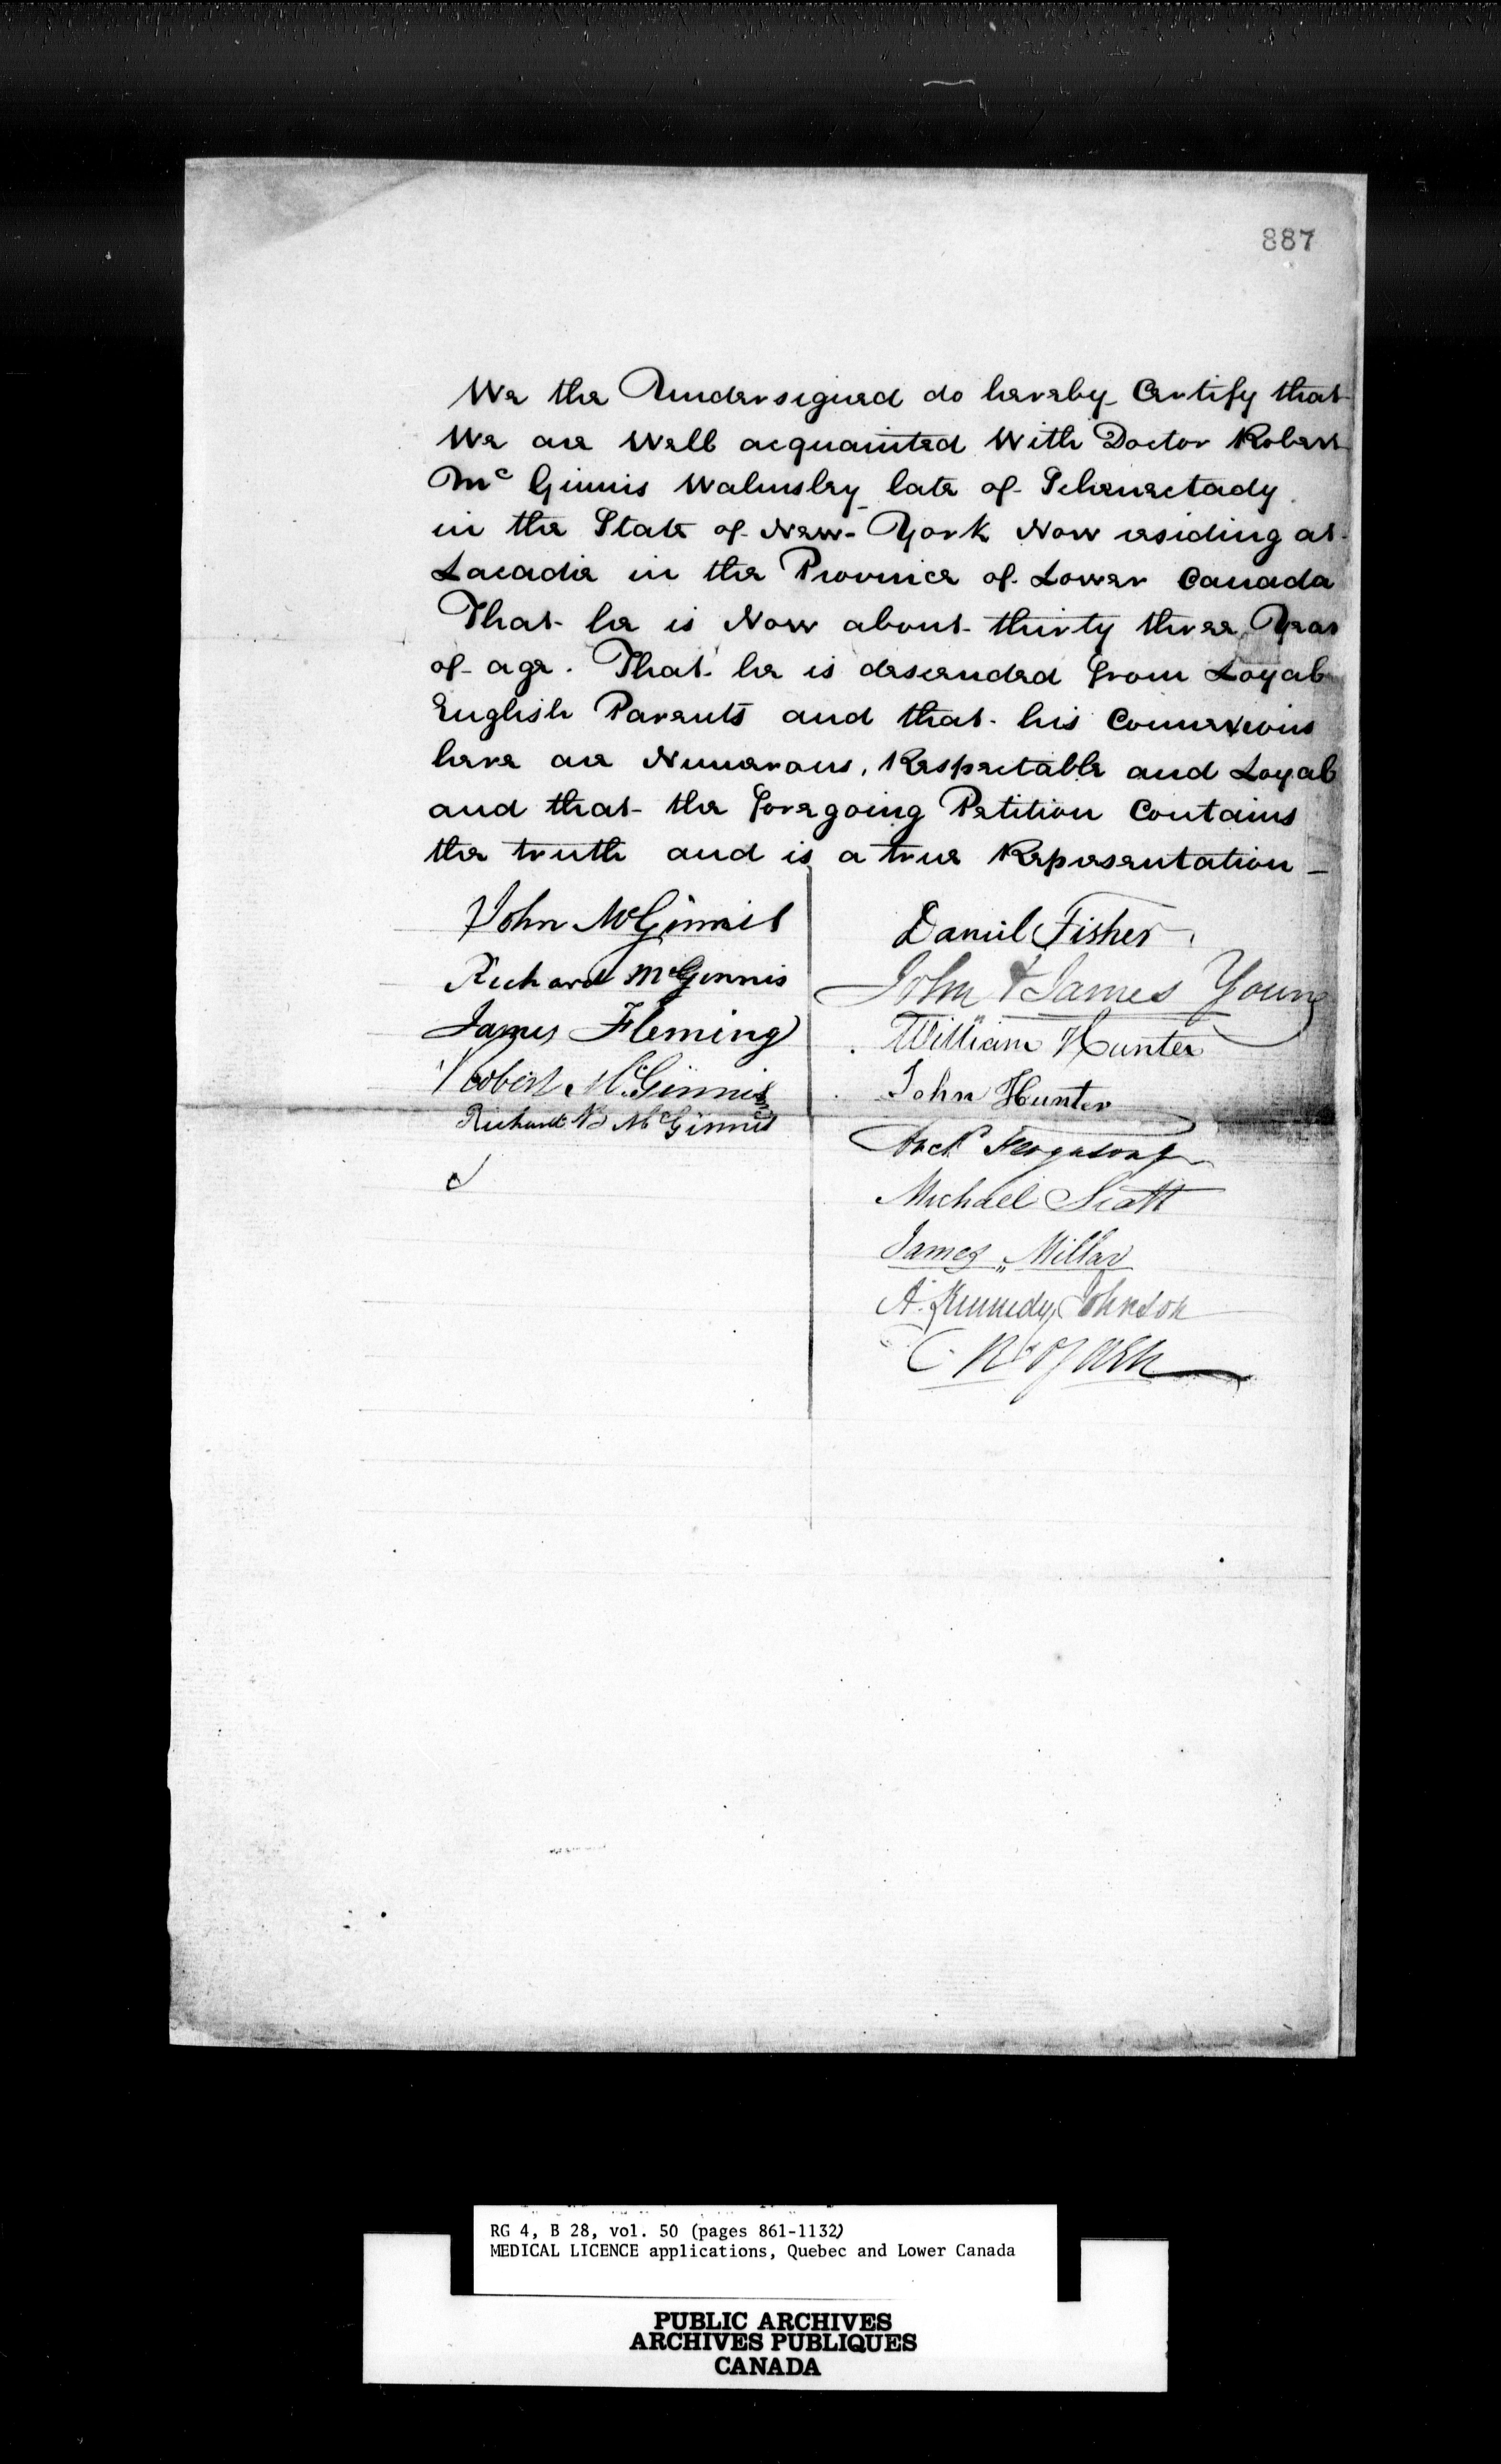 887
We the Undersigned do hereby Certify that
We are Well acquainted With Doctor Robert
Mc Ginnis Walmsley late of Schenectady
in the State of New-York Now residing at
Lacadie in the Province of Lower Canada
That he is Now about thirty three Years
of age. That he is descended from Loyal
English Parents and that his Connexions
here are Numerous, Respectable and Loyal
and that the foregoing Petition Contains
the truth and is a true Representation —
John McGinnis
Richard McGinnis
James Fleming
Robert McGinnis
Richard McGinnis
Daniel Fisher
John & James Young
William Hunter
John Hunter
Archd Ferguson
Michael Scott
James Millar
A. Kennedy Johnson
RG 4, B 28, vol. 50 (pages 861-1132)
MEDICAL LICENCE applications, Quebec and Lower Canada
PUBLIC ARCHIVES
ARCHIVES PUBLIQUES
CANADA